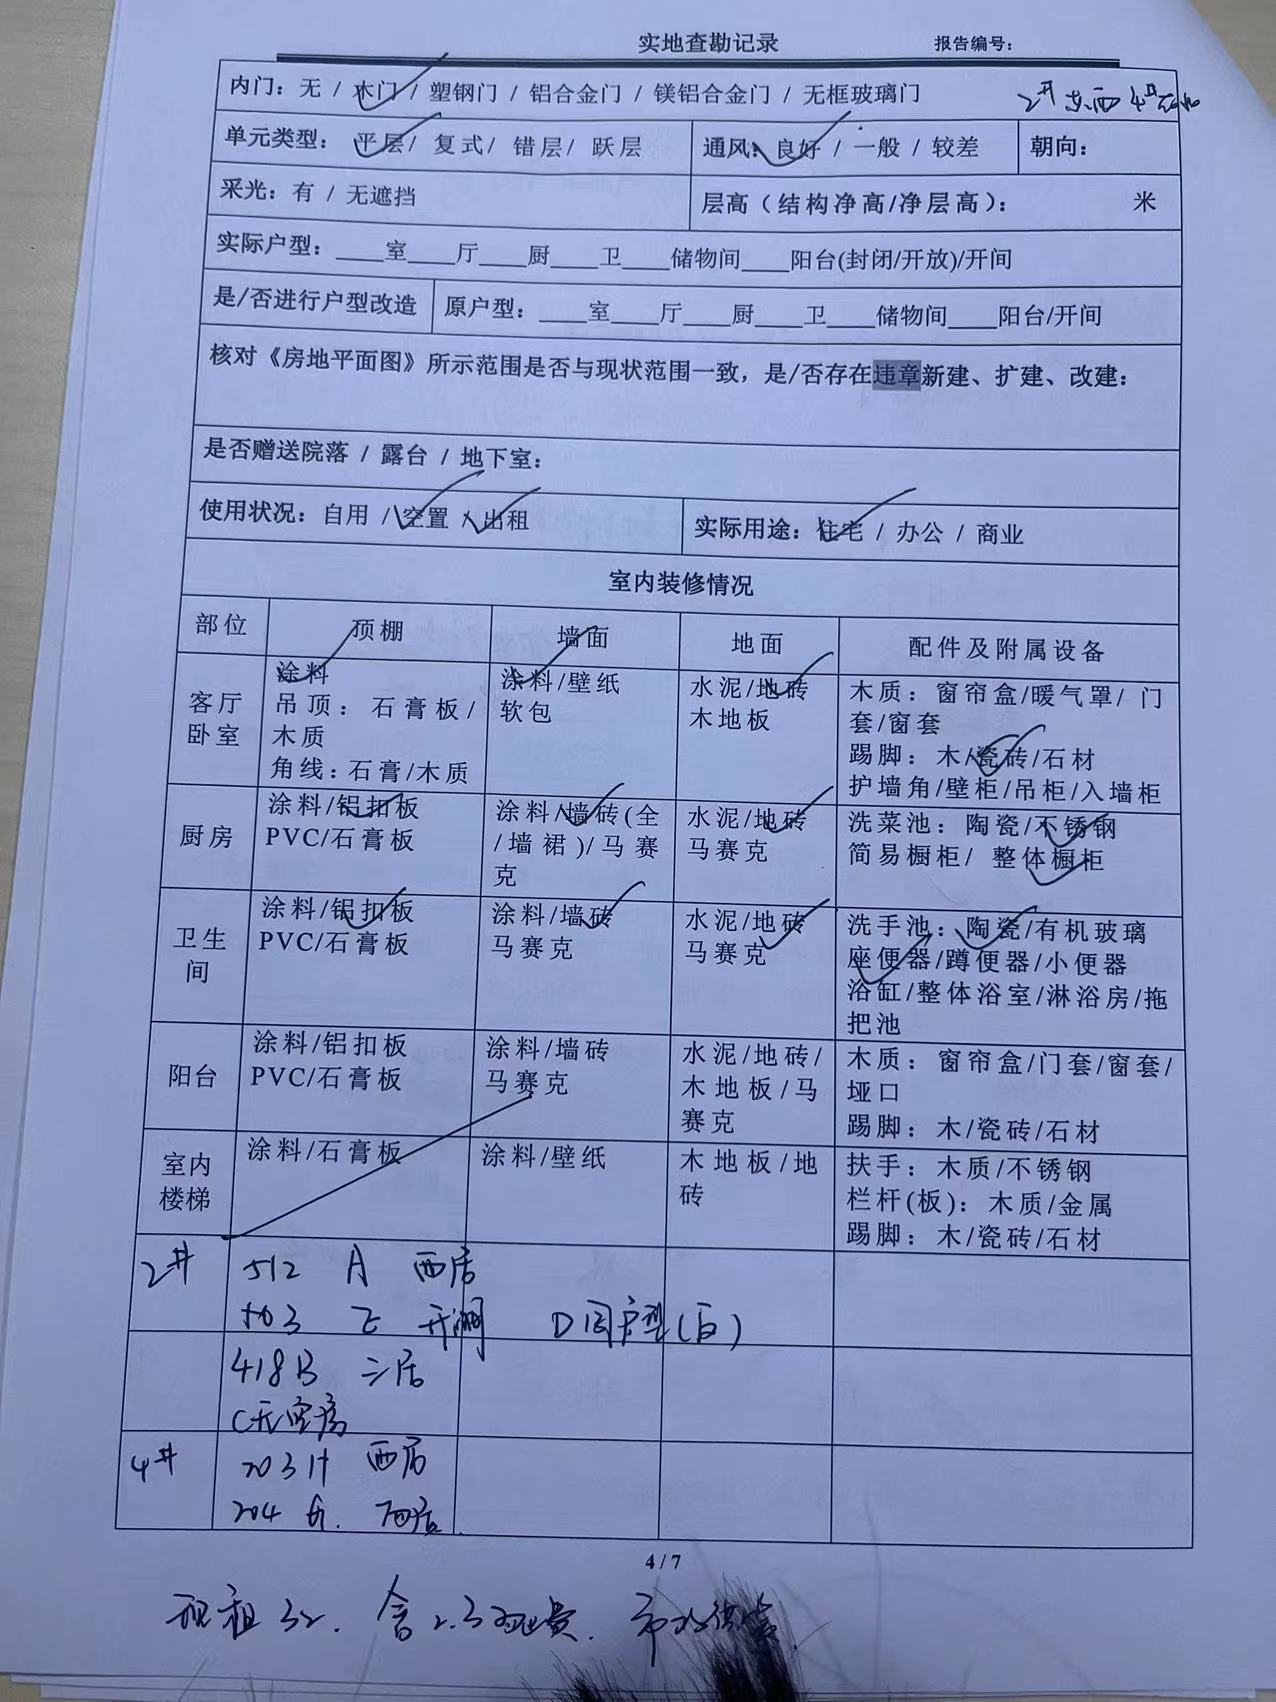 实地查勘记录 报告编号：
内门：无 / 木门 / 塑钢门 / 铝合金门 / 镁铝合金门 / 无框玻璃门
2# 东西 4#
单元类型： 平层/ 复式/ 错层/ 跃层 通风：良好 / 一般 / 较差 朝向：
采光：有 / 无遮挡 层高（结构净高/净层高）： 米
实际户型：____室____厅____厨____卫____储物间____阳台(封闭/开放)/开间
是/否进行户型改造 原户型：____室____厅____厨____卫____储物间____阳台/开间
核对《房地平面图》所示范围是否与现状范围一致，是/否存在违章新建、扩建、改建：
是否赠送院落 / 露台 / 地下室：
使用状况：自用 / 空置 / 出租 实际用途：住宅 / 办公 / 商业
室内装修情况
部位 顶棚 墙面 地面 配件及附属设备
客厅
卧室
涂料
吊顶：石膏板/
木质
角线：石膏/木质
涂料/壁纸
软包
水泥/地砖
木地板
木质：窗帘盒/暖气罩/ 门
套/窗套
踢脚：木/瓷砖/石材
护墙角/壁柜/吊柜/入墙柜
厨房
涂料/铝扣板
PVC/石膏板
涂料/墙砖(全
/墙裙)/马赛
克
水泥/地砖
马赛克
洗菜池：陶瓷/不锈钢
简易橱柜/ 整体橱柜
卫生
间
涂料/铝扣板
PVC/石膏板
涂料/墙砖
马赛克
水泥/地砖
马赛克
洗手池：陶瓷/有机玻璃
座便器/蹲便器/小便器
浴缸/整体浴室/淋浴房/拖
把池
阳台
涂料/铝扣板
PVC/石膏板
涂料/墙砖
马赛克
水泥/地砖/
木地板/马
赛克
木质：窗帘盒/门套/窗套/
垭口
踢脚：木/瓷砖/石材
室内
楼梯
涂料/石膏板
涂料/壁纸
木地板/地
砖
扶手：木质/不锈钢
栏杆(板)：木质/金属
踢脚：木/瓷砖/石材
2# 512 A 西居
503 E 开间 D同户型(百)
418B 三居
C无空房
4# 203 H 西居
204 西居
4 / 7
现租32. 含2.3物业费.